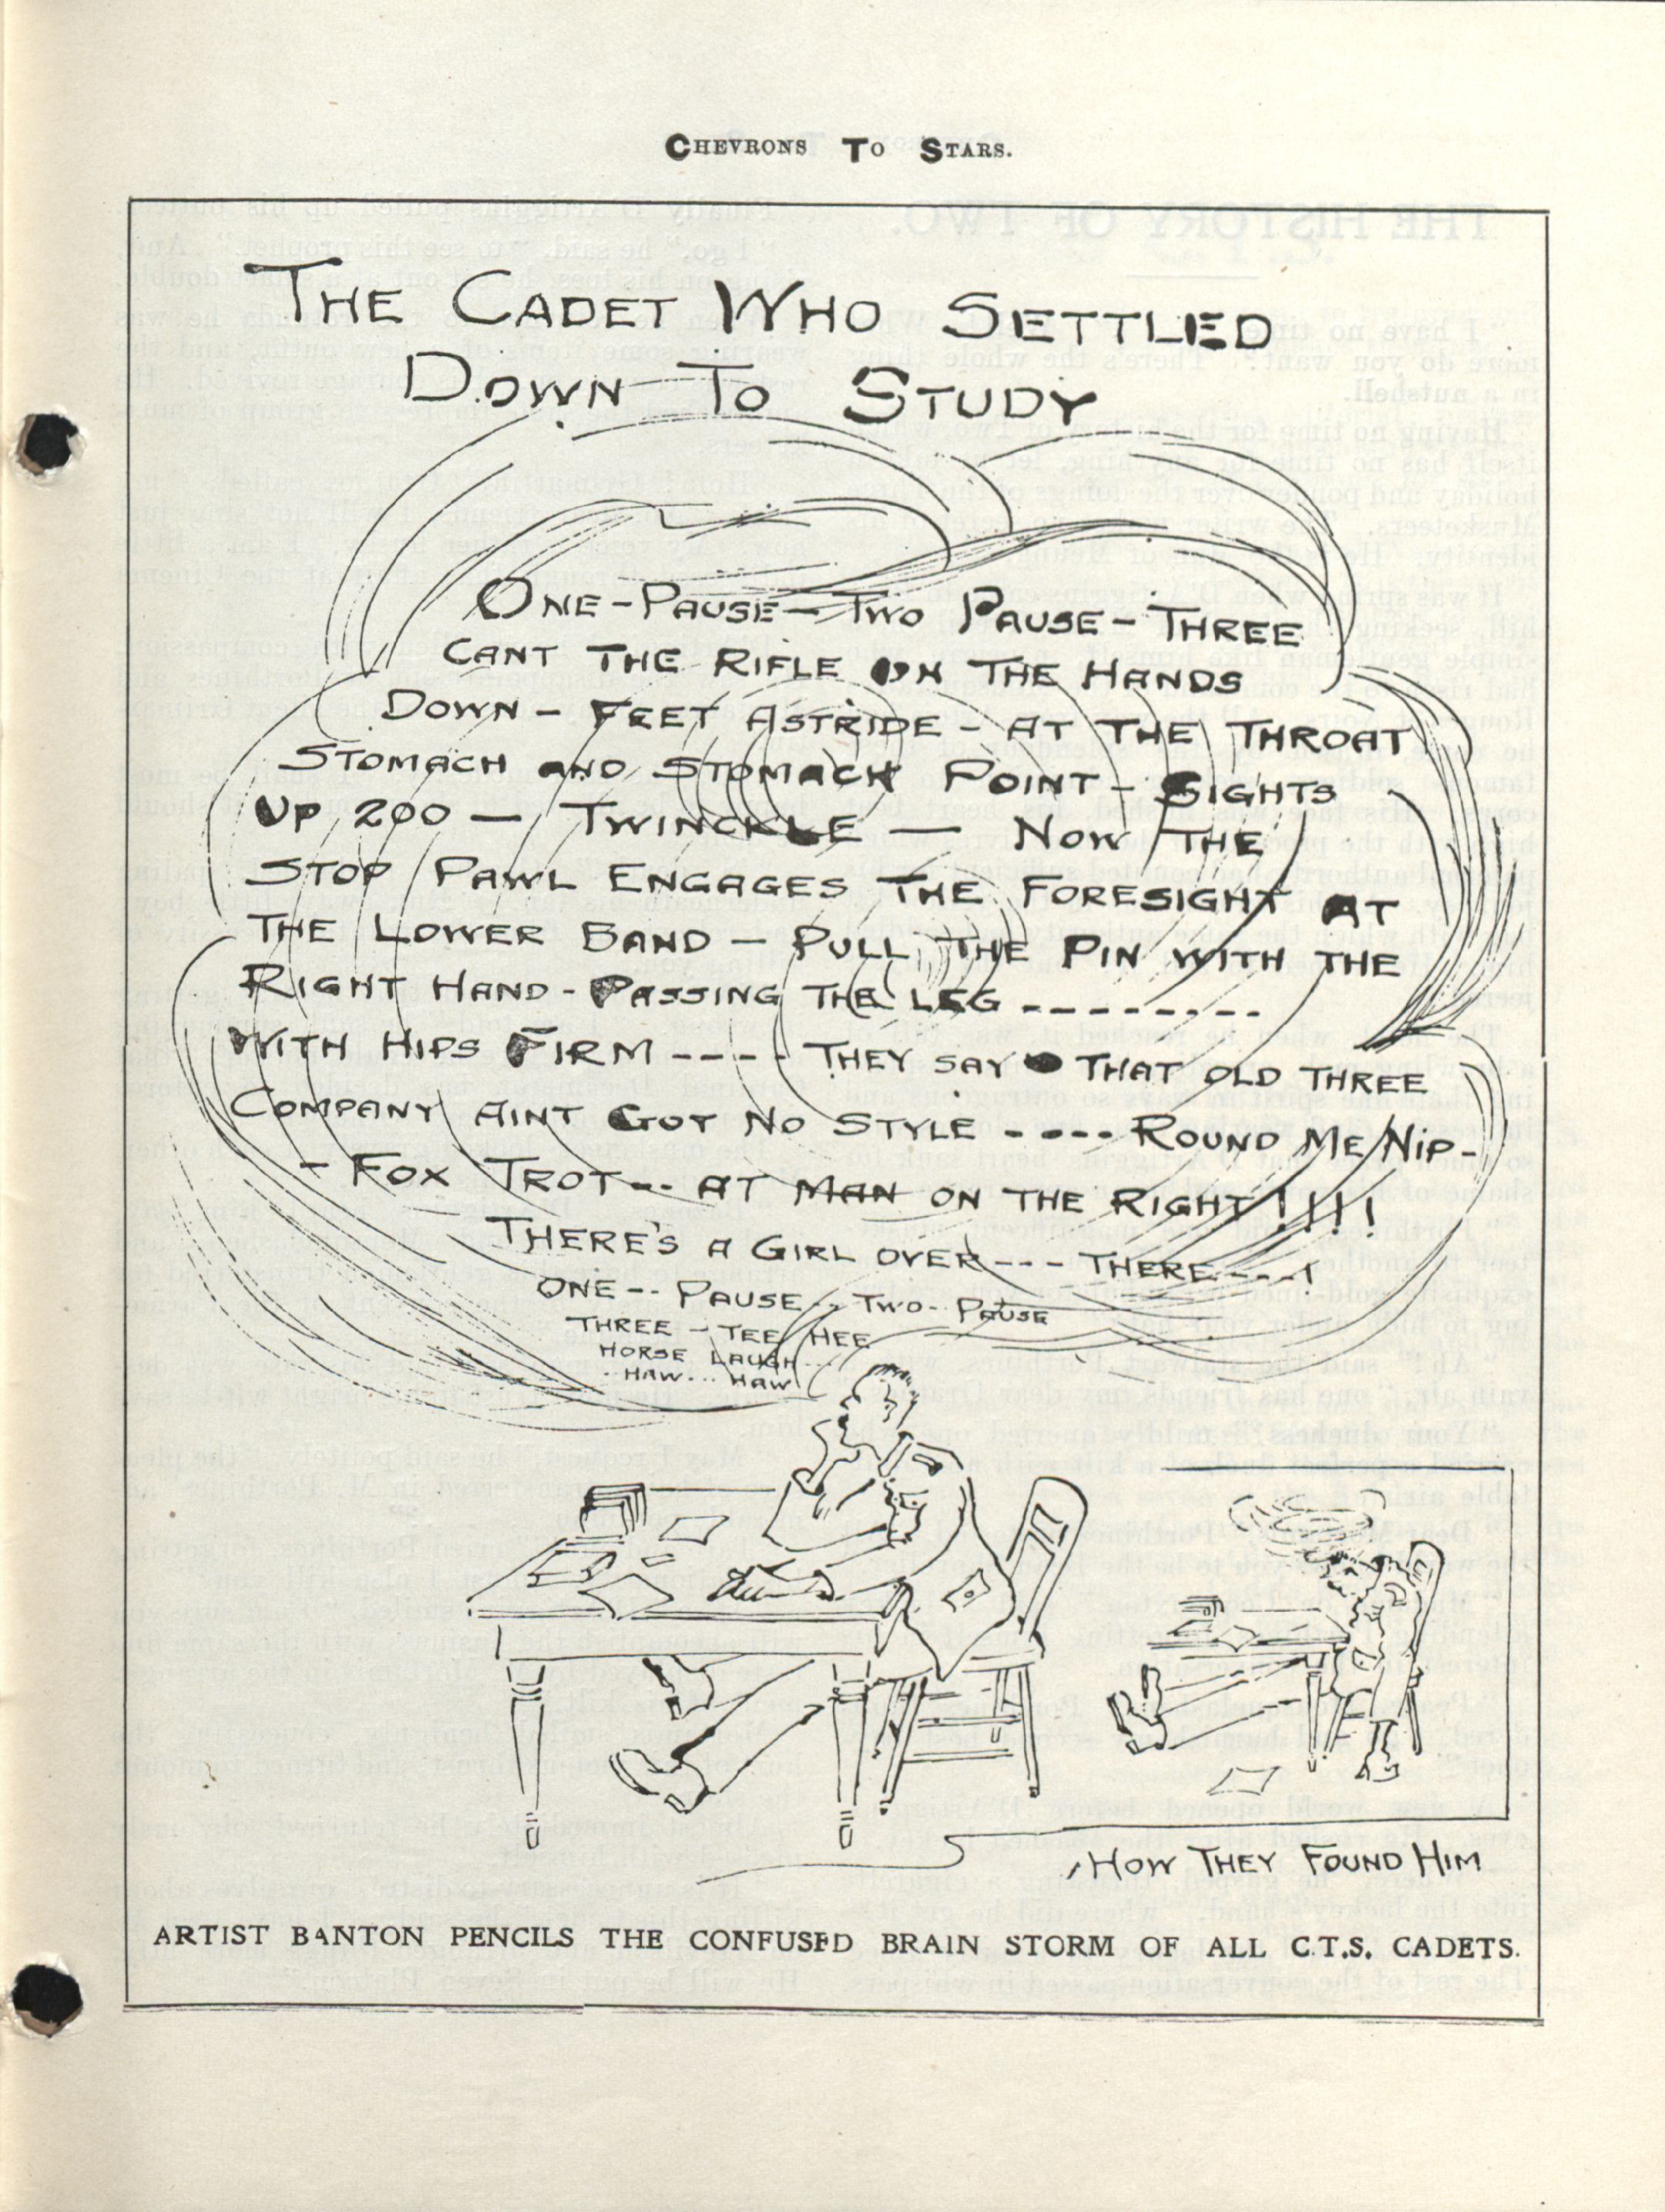 CHEVRONS TO STARS.
THE CADET WHO SETTLED
DOWN TO STUDY
ONE-PAUSE-TWO PAUSE-THREE
CANT THE RIFLE ON THE HANDS
DOWN - FEET ASTRIDE - AT THE THROAT
STOMACH AND STOMACH POINT - SIGHTS
UP 200 - TWINCKLE - NOW THE
STOP PAWL ENGAGES THE FORESIGHT AT
THE LOWER BAND - PULL THE PIN WITH THE
RIGHT HAND - PASSING THE LEG ---------
WITH HIPS FIRM ---- THEY SAY THAT OLD THREE
COMPANY AINT GOT NO STYLE ---- ROUND ME NIP-
- FOX TROT -- AT MAN ON THE RIGHT!!!!
THERE'S A GIRL OVER --- THERE ----!
ONE -- PAUSE -- TWO -- PAUSE
THREE - TEE HEE
HORSE LAUGH...
..HAW... HAW
HOW THEY FOUND HIM
ARTIST BANTON PENCILS THE CONFUSED BRAIN STORM OF ALL C.T.S. CADETS.